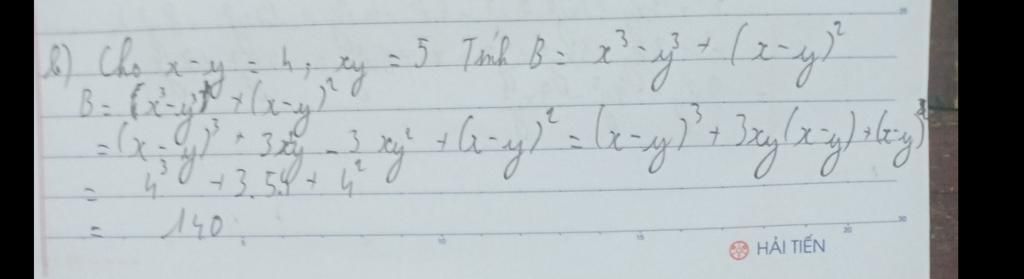 b) Cho x - y = 4, xy = 5 Tính B = x³ - y³ + (x - y)²
B = (x³ - y³) + (x - y)²
= (x - y)³ + 3x²y - 3xy² + (x - y)² = (x - y)³ + 3xy(x - y) + (x - y)²
= 4³ + 3.5.4 + 4²
= 140
5 10 15 20
HẢI TIẾN